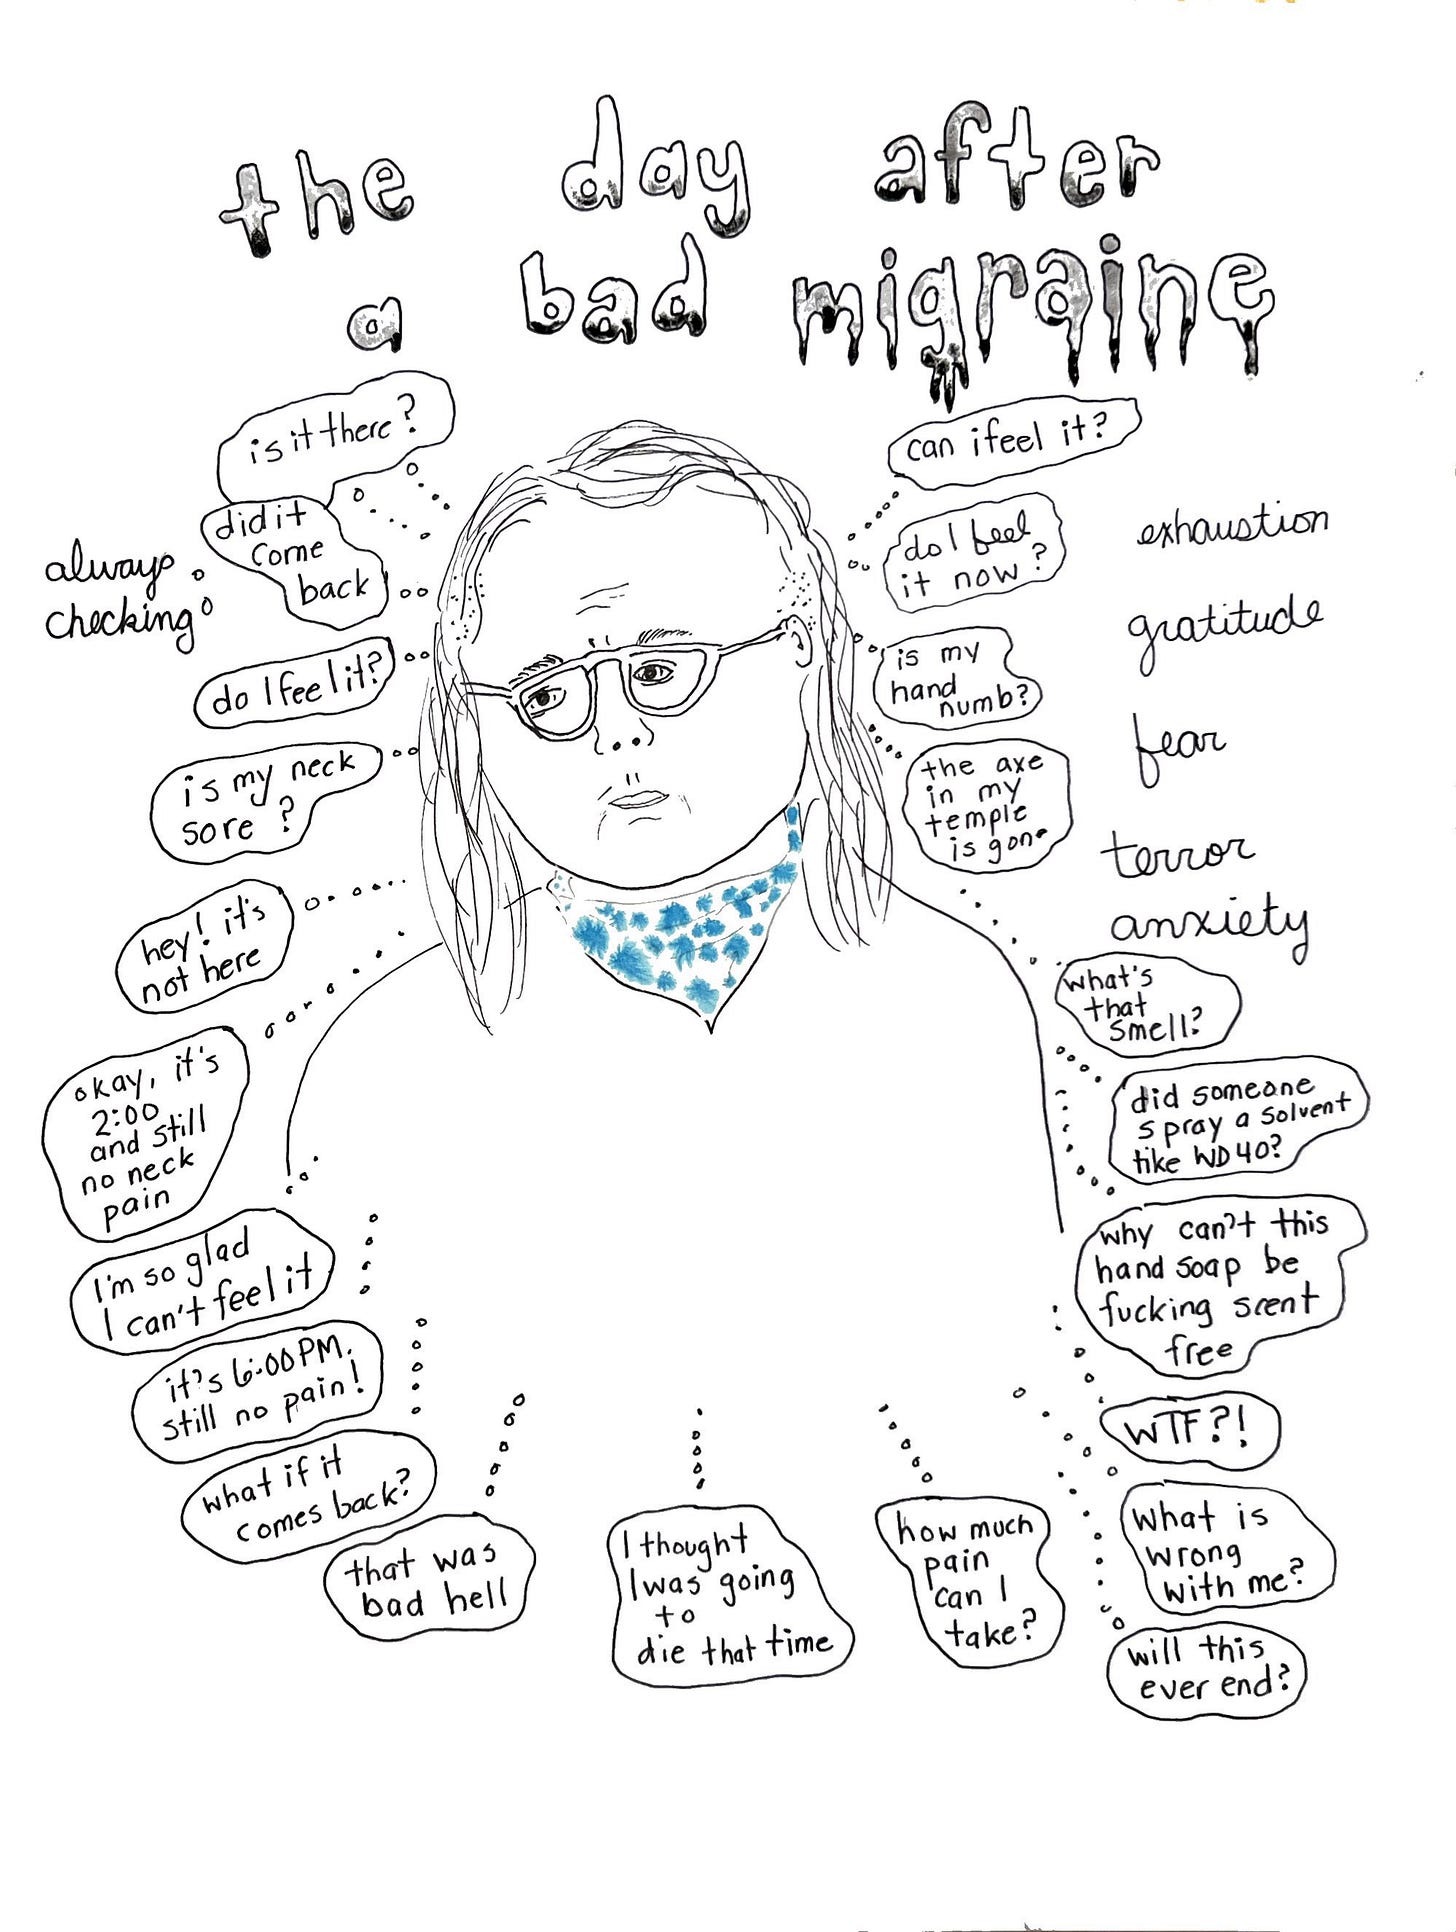 the day after
a bad migraine
is it there?
did it
come
back
always
checking
do I feel it?
is my neck
sore?
hey! it's
not here
okay, it's
2:00
and still
no neck
pain
I'm so glad
I can't feel it
it's 6:00 PM.
still no pain!
what if it
comes back?
that was
bad hell
I thought
I was going
to
die that time
how much
pain
can I
take?
can i feel it?
do I feel
it now?
is my
hand
numb?
the axe
in my
temple
is gone
exhaustion
gratitude
fear
terror
anxiety
what's
that
smell?
did someone
spray a solvent
like WD40?
why can't this
hand soap be
fucking scent
free
WTF?!
What is
wrong
with me?
will this
ever end?